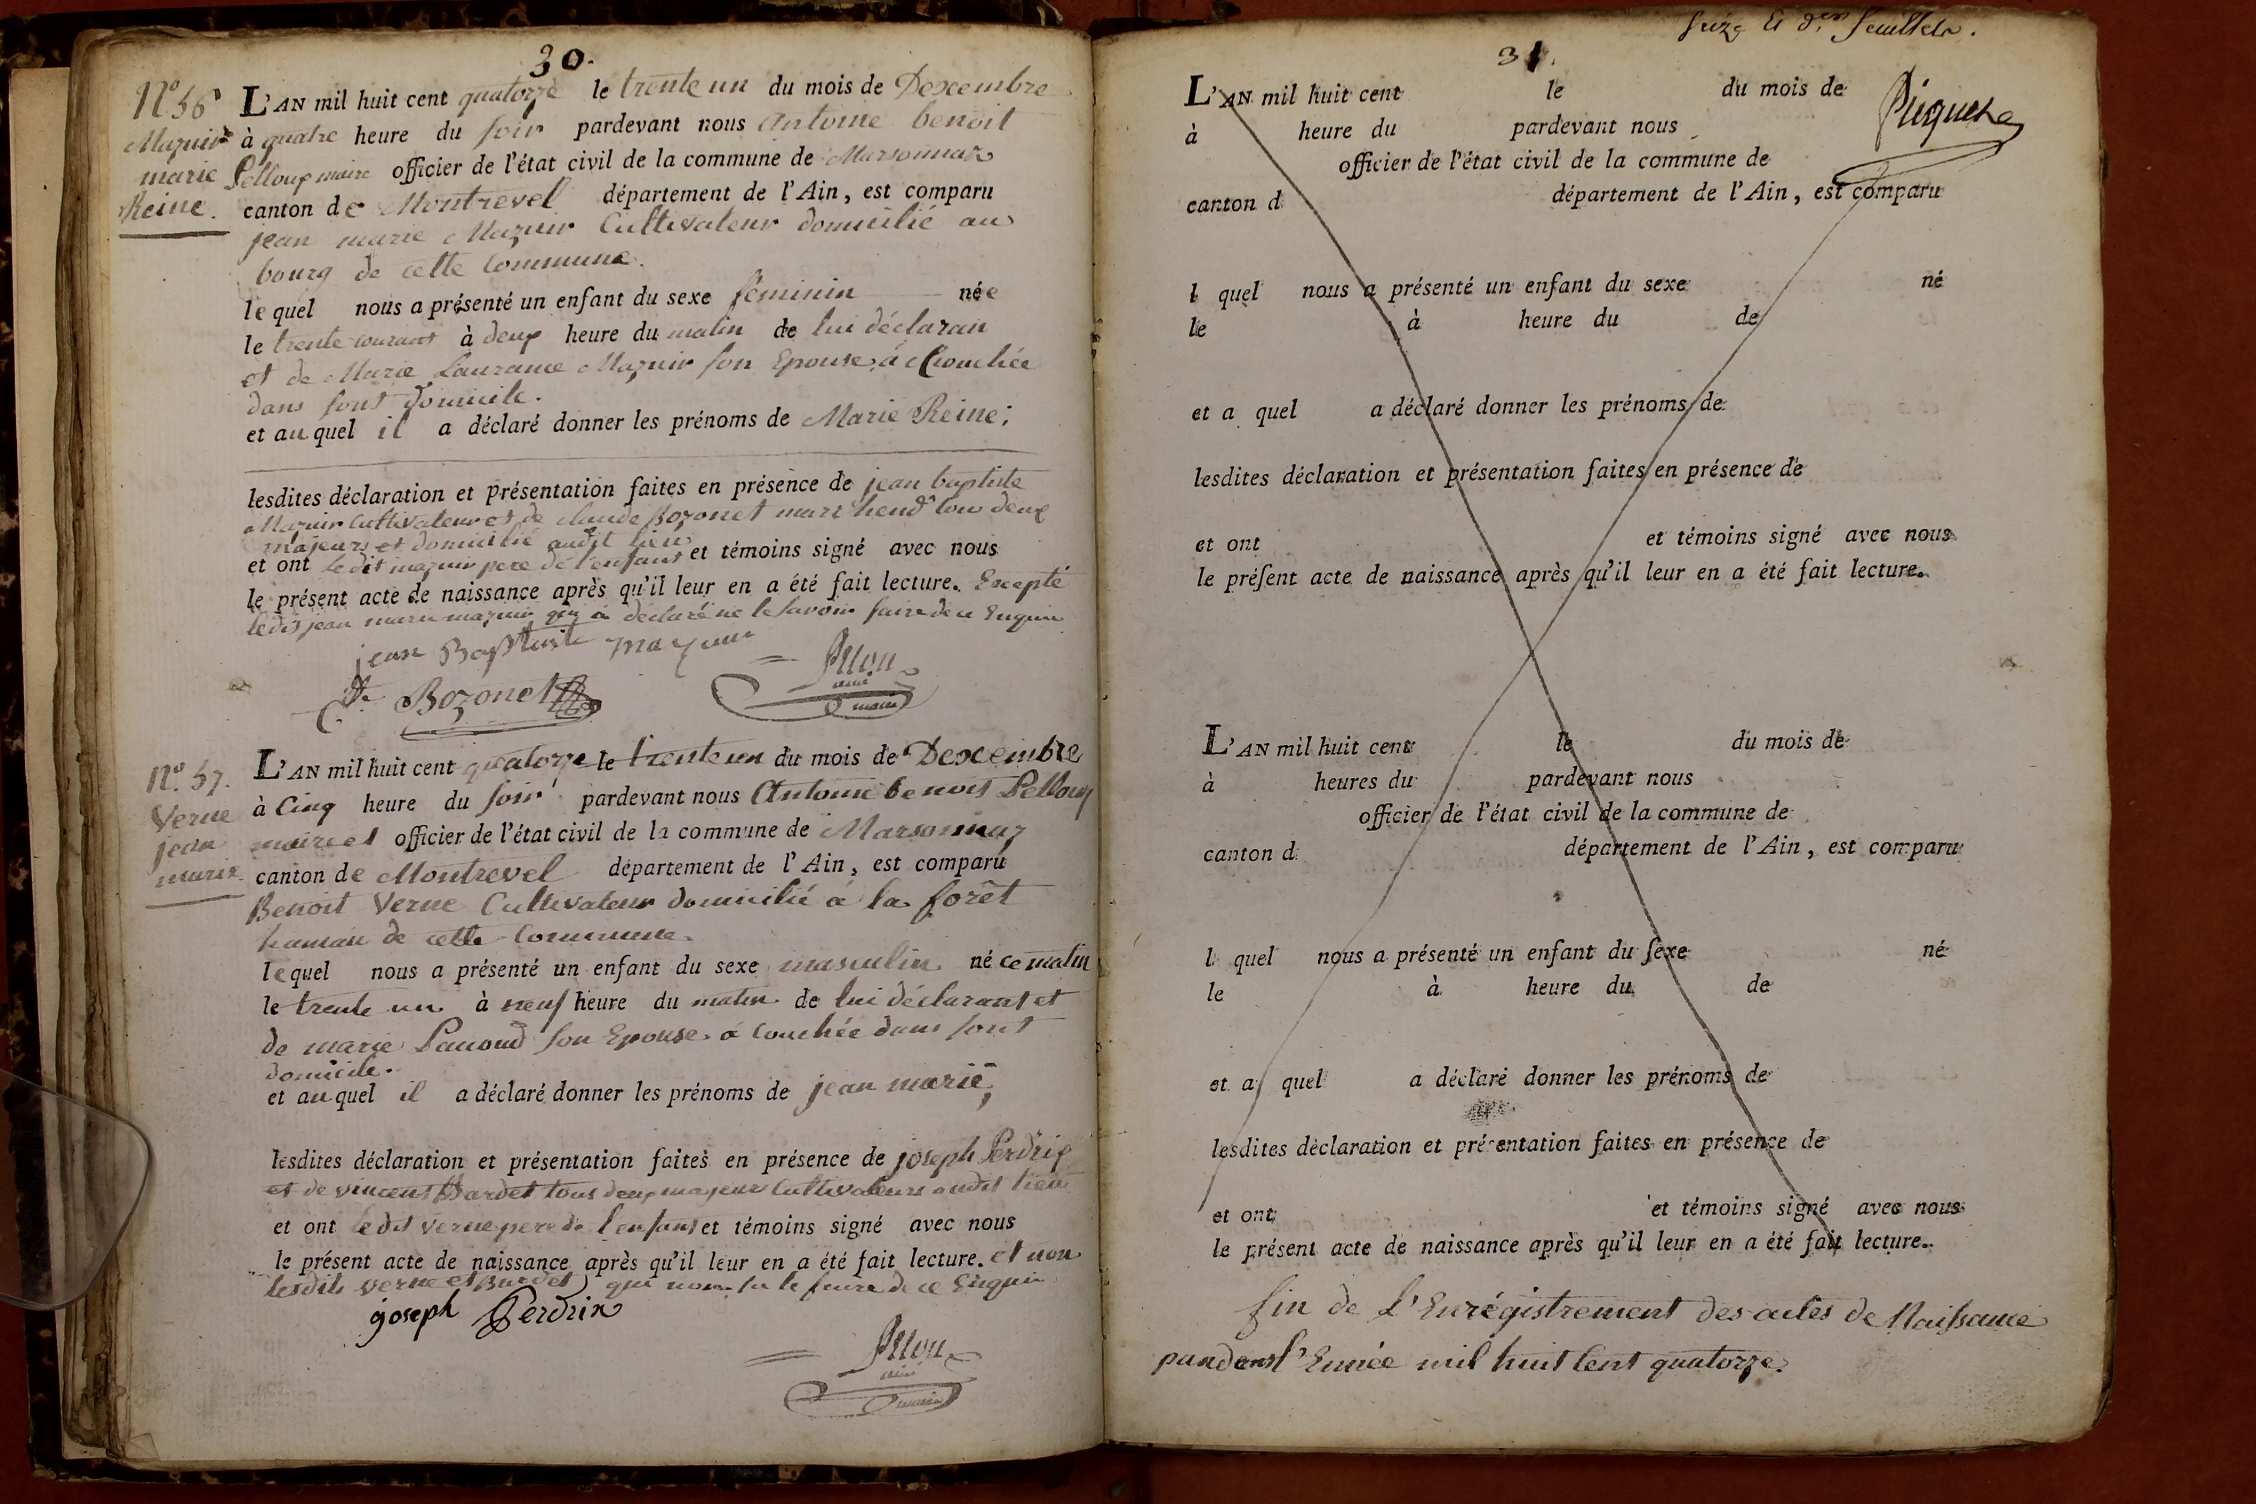 30.
N.º 56
Mazuir
marie
Reine.
L'AN mil huit cent quatorze le trente un du mois de Dexcembre
à quatre heure du soir pardevant nous Antoine benoit
Pelloux maire officier de l'état civil de la commune de Marsonnaz
canton de Montrevel département de l'Ain, est comparu
jean marie Mazuir Cultivateur domicilié au
bourg de cette Commune.
lequel nous a présenté un enfant du sexe féminin née
le trente courant à deux heure du matin de lui déclaran
et de Marie Laurance Mazuir son Epouse, à Couchée
dans sont domicile.
et auquel il a déclaré donner les prénoms de Marie Reine;
lesdites déclaration et présentation faites en présence de jean baptiste
Mazuir Cultivateur et de claude Bozonet marchend tou deux
majeurs et domicilié audit lieu
et ont ledit mazuir pere de l'enfant et témoins signé avec nous
le présent acte de naissance après qu'il leur en a été fait lecture. Excepté
ledit jean marie mazuir qui à déclaré ne le savoir faire de ce Enquis
jean Baptiste mazuir
Bozonet
maire
N.º 57.
Verne
jean
marie
L'AN mil huit cent quatorze le trente un du mois de Dexcembre
à Cinq heure du soir pardevant nous Antoine benoit Pelloux
maire et officier de l'état civil de la commune de Marsonnaz
canton de Montrevel département de l'Ain, est comparu
Benoit Verne Cultivateur domicilié à la forêt
hamau de cette Commune.
lequel nous a présenté un enfant du sexe masculin né ce matin
le trente un à neuf heure du matin de lui déclarant et
de marie Panoud son Epouse à Couchée dans sont
domicile.
et auquel il a déclaré donner les prénoms de jean marie;
lesdites déclaration et présentation faites en présence de joseph Perdrix
et de vincent Bardet tous deux majeur Cultivateurs audit lieu
et ont ledit verne pere de l'enfant et témoins signé avec nous
le présent acte de naissance après qu'il leur en a été fait lecture. et non
lesdits verne et Bardet qui non su le faire de ce Enquis
joseph Perdrix
maire
31.
feuillet.
Piquet
L'AN mil huit cent le du mois de
à heure du pardevant nous
officier de l'état civil de la commune de
canton d département de l'Ain, est comparu
l quel nous a présenté un enfant du sexe né
le à heure du de
et a quel a déclaré donner les prénoms de
lesdites déclaration et présentation faites en présence de
et ont et témoins signé avec nous
le préſent acte de naissance après qu'il leur en a été fait lecture.
L'AN mil huit cent le du mois de
à heures du pardevant nous
officier de l'état civil de la commune de
canton d département de l'Ain, est comparu
l quel nous a présenté un enfant du ſexe né
le à heure du de
et a quel a déclaré donner les prénoms de
lesdites déclaration et présentation faites en présence de
et ont et témoins signé avec nous
le présent acte de naissance après qu'il leur en a été fait lecture.
fin de L'Enrégistrement des actes de Naissance
pandent l'Ennée mil huit Cent quatorze.